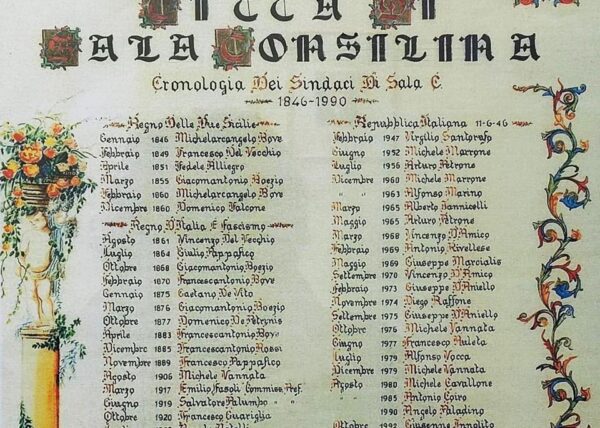 Città Di
Sala Consilina
Cronologia Dei Sindaci Di Sala C.
1846-1990
Regno Delle Due Sicilie
Gennaio 1846 Michelarcangelo Bove
Febbraio 1849 Francesco Del Vecchio
Aprile 1851 Fedele Alliegro
Marzo 1855 Giacomantonio Boezio
Febbraio 1860 Michelarcangelo Bove
Dicembre 1860 Domenico Falcone
Regno D'Italia E Fascismo
Agosto 1861 Vincenzo Del Vecchio
Luglio 1864 Giulio Pappafico
Ottobre 1868 Giacomantonio Boezio
Febbraio 1870 Francescantonio Bove
Gennaio 1875 Gaetano De Vito
Marzo 1876 Giacomantonio Boezio
Ottobre 1877 Domenico De Petrinis
Aprile 1883 Francescantonio Bove
Dicembre 1885 Francescantonio Rossi
Novembre 1889 Francesco Pappafico
Agosto 1906 Michele Vannata
Marzo 1917 Emilio Fasoli Commiss. Pref.
Giugno 1919 Salvatore Palumbo " "
Ottobre 1920 Francesco Guariglia
Repubblica Italiana 11-6-46
Febbraio 1947 Virgilio Santorufo
Giugno 1952 Michele Marrone
Luglio 1956 Arturo Petrone
Dicembre 1960 Michele Marrone
" 1963 Alfonso Marino
Marzo 1965 Alberto Iannicelli
Maggio 1965 Arturo Petrone
Marzo 1968 Vincenzo D'Amico
Febbraio 1969 Antonio Rivellese
Maggio 1969 Giuseppe Marcialis
Settembre 1970 Vincenzo D'Amico
Febbraio 1973 Giuseppe D'Aniello
Novembre 1974 Diego Raffone
Settembre 1975 Giuseppe D'Aniello
Ottobre 1976 Michele Vannata
Giugno 1977 Francesco Auleta
Luglio 1979 Alfonso Vocca
Dicembre 1979 Michele Vannata
Agosto 1980 Michele Cavallone
1985 Antonio Coiro
1990 Angelo Paladino
Ottobre 1992 Giuseppe Innolito